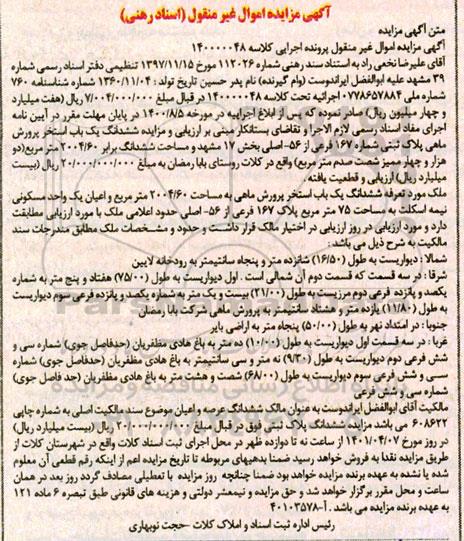 آگهی مزایده اموال غیر منقول (اسناد رهنی)
متن آگهی مزایده
آگهی مزایده اموال غیر منقول پرونده اجرایی کلاسه ۱۴۰۰۰۰۰۴۸
آقای علیرضا نخعی راد به استناد سند رهنی شماره ۱۱۲۰۲۶ مورخ ۱۳۹۷/۱۱/۱۵ تنظیمی دفتر اسناد رسمی شماره
۳۹ مشهد علیه ابوالفضل ایراندوست (وام گیرنده) نام پدر حسین تاریخ تولد : ۱۳۶۰/۱۱/۰۴ شماره شناسنامه ۷۶۰
شماره ملی ۰۷۷۸۶۵۷۸۸۴ اجرائیه تحت کلاسه ۱۴۰۰۰۰۰۴۸ در قبال مبلغ ۷/۰۰۴/۰۰۰/۰۰۰ ریال (هفت میلیارد
و چهار میلیون ریال) صادر نموده که پس از ابلاغ اجراییه در مورخه ۱۴۰۰/۸/۵ در پایان مهلت مقرر در آیین نامه
اجرای مفاد اسناد رسمی لازم الاجرا و تقاضای بستانکار مبنی بر ارزیابی و مزایده ششدانگ یک باب استخر پرورش
ماهی پلاک ثبتی شماره ۱۶۷ فرعی از ۵۶- اصلی بخش ۱۷ مشهد و مساحت ششدانگ برابر ۲۰۰۴/۶۰ متر مربع(دو
هزار و چهار ممیز شصت صدم متر مربع) واقع در کلات روستای بابا رمضان به مبلغ ۲۰/۰۰۰/۰۰۰/۰۰۰ ریال (بیست
میلیارد ریال) ارزیابی و قطعیت یافته.
ملک مورد تعرفه ششدانگ یک باب استخر پرورش ماهی به مساحت ۲۰۰۴/۶۰ متر مربع و اعیان یک واحد مسکونی
نیمه اسکلت به مساحت ۷۵ متر مربع پلاک ۱۶۷ فرعی از ۵۶- اصلی حدود اعلامی ملک با مورد ارزیابی مطابقت
دارد و مورد ارزیابی در روز ارزیابی در اختیار مالک قرار داشت و حدود و مشخصات ملک مطابق مندرجات سند
مالکیت به شرح ذیل می باشد :
شمالا : دیواریست به طول (۱۶/۵۰) شانزده متر و پنجاه سانتیمتر به رودخانه لایین
شرقا : در سه قسمت که قسمت دوم آن شمالی است . اول دیواریست به طول (۷۵/۰۰) هفتاد و پنج متر به شماره
یکصد و پانزده فرعی دوم مرزیست به طول (۲۱/۰۰) بیست و یک متر به شماره یکصد و پانزده فرعی سوم دیواریست
به طول (۱۱/۸۰) یازده متر و هشتاد سانتیمتر به پرورش ماهی شرکت بابا رمضان
جنوبا : در امتداد نهر به طول (۵۰/۰۰) پنجاه متر به اراضی بایر
غربا : در سه قسمت اول دیواریست به طول (۱۰/۰۰) ده متر به باغ هادی مظفریان (حدفاصل جوی) شماره سی و
شش فرعی دوم دیواریست به طول (۹/۳۰) نه متر و سی سانتیمتر به باغ هادی مظفریان (حدفاصل جوی) شماره
سی و شش فرعی سوم دیواریست به طول (۶۸/۰۰) شصت و هشت متر به باغ هادی مظفریان (حد فاصل جوی)
شماره سی و شش فرعی
مالکیت آقای ابوالفضل ایراندوست به عنوان مالک ششدانگ عرصه و اعیان موضوع سند مالکیت اصلی به شماره چاپی
۶۰۸۶۲۲ می باشد مزایده ششدانگ پلاک ثبتی فوق در قبال مبلغ ۲۰/۰۰۰/۰۰۰/۰۰۰ ریال (بیست میلیارد ریال)
در روز مورخ ۱۴۰۱/۰۴/۰۷ از ساعت نه تا دوازده ظهر در محل اجرای ثبت اسناد کلات واقع در شهرستان کلات از
طریق مزایده نقدا به فروش خواهد رسید ضمنا بدهیهای مربوطه تا تاریخ مزایده اعم از اینکه رقم قطعی آن معلوم
شده یا نشده به عهده برنده مزایده خواهد بود ضمنا چنانچه روز مزایده با تعطیلی مصادف گردد روز بعد در همان
ساعت و محل مقرر برگزار خواهد شد و حق مزایده و نیمعشر دولتی و هزینه های قانونی طبق تبصره ۶ ماده ۱۲۱
به عهده برنده مزایده می باشد . آ-۴۰۱۰۳۵۷۸
رئیس اداره ثبت اسناد و املاک کلات -حجت نوبهاری